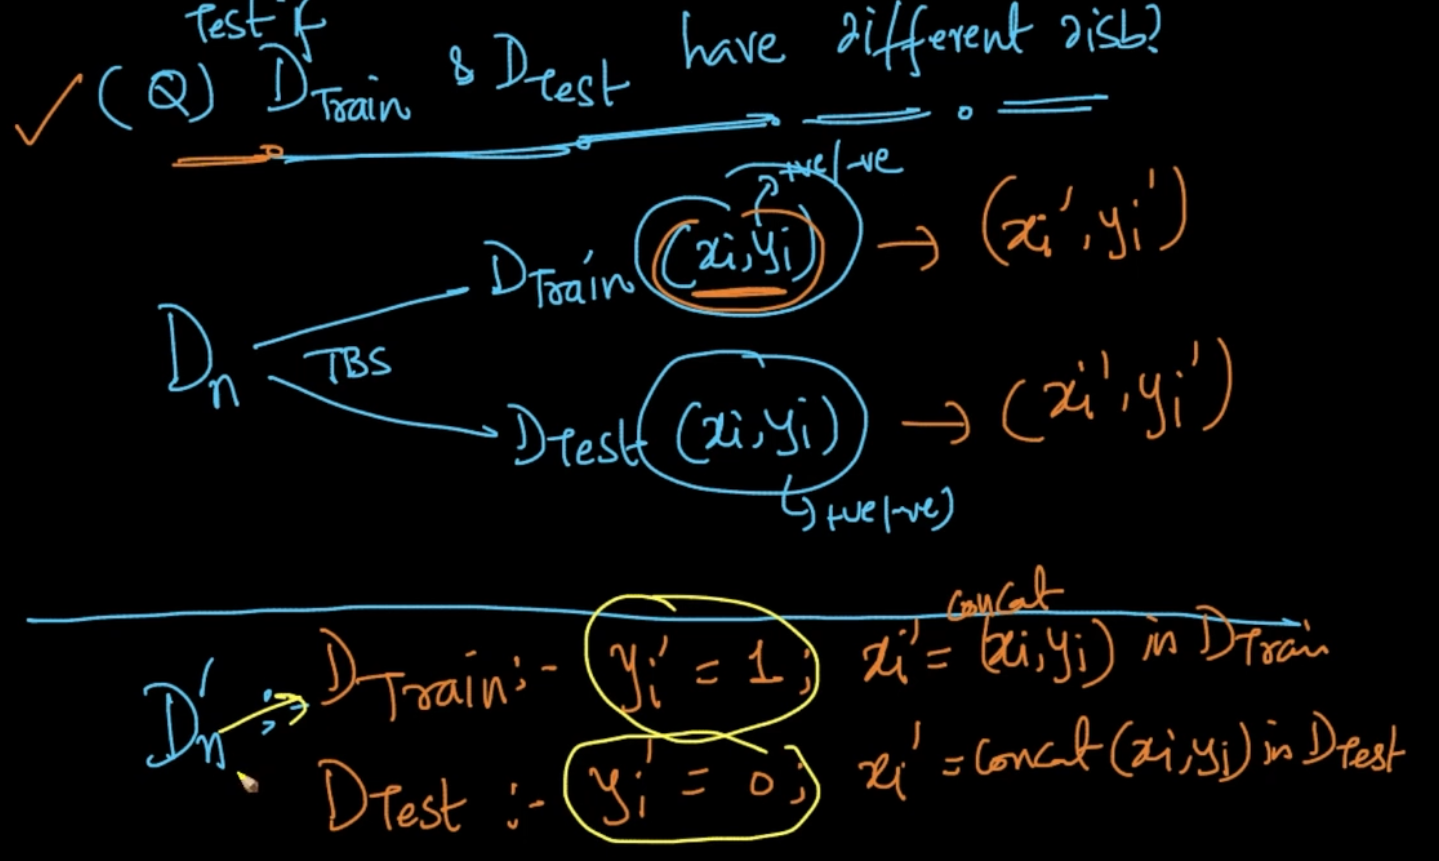 Test if
(Q) D Train & D Test have different disb?
+ve/-ve
D Train (xi, yi) → (xi', yi')
Dn
TBS
D Test (xi, yi) → (xi', yi')
+ve/-ve)
concat
D Train :- yi' = 1; xi' = (xi, yi) in D Train
Dn'
D Test :- yi' = 0; xi' = concat (xi, yi) in D Test